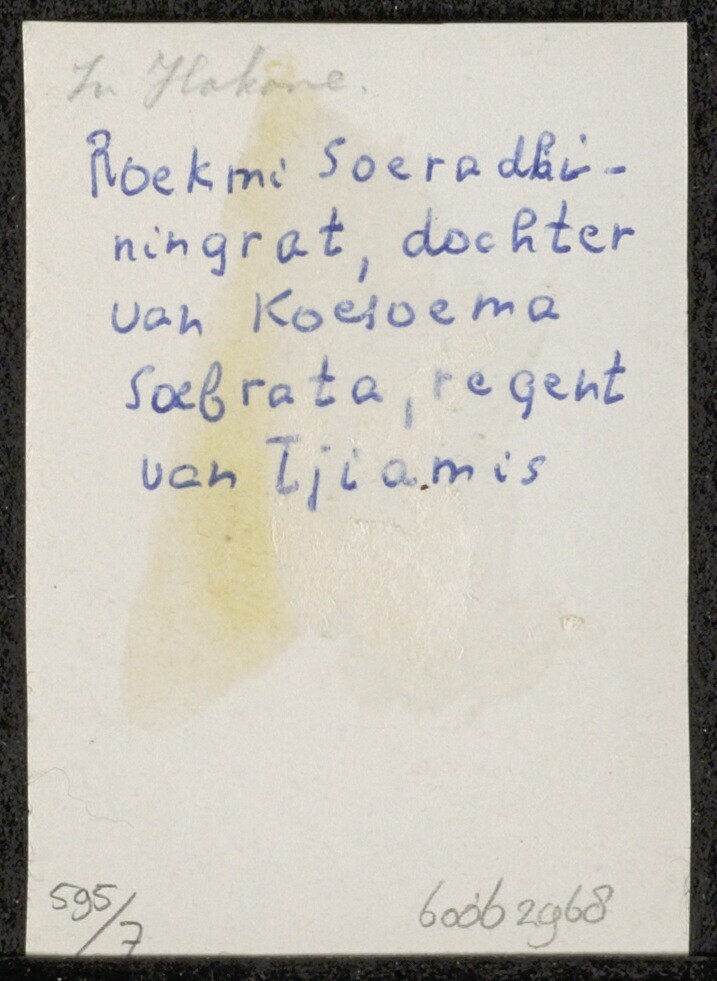 In Hakone.
Roekmi Soeradhi-
ningrat, dochter
van Koesoema
Soebrata, regent
van Tjiamis
595/7
60062968